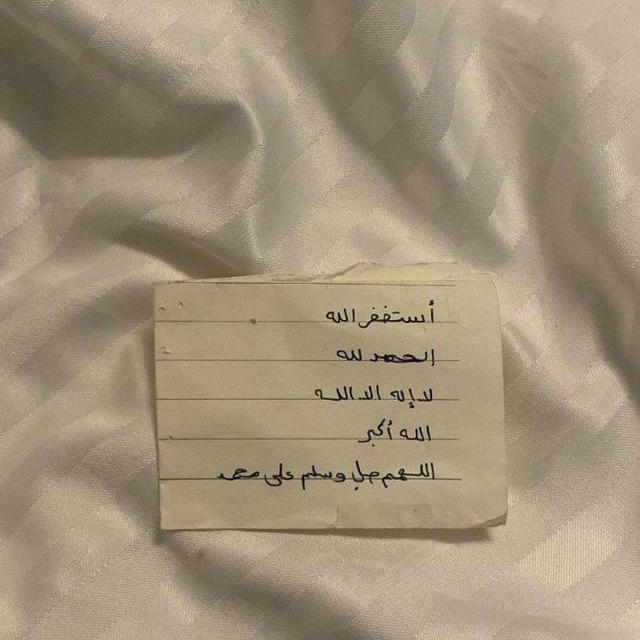 أستغفر الله
الحمد لله
لا إله الا الله
الله أكبر
اللهم صل وسلم على محمد